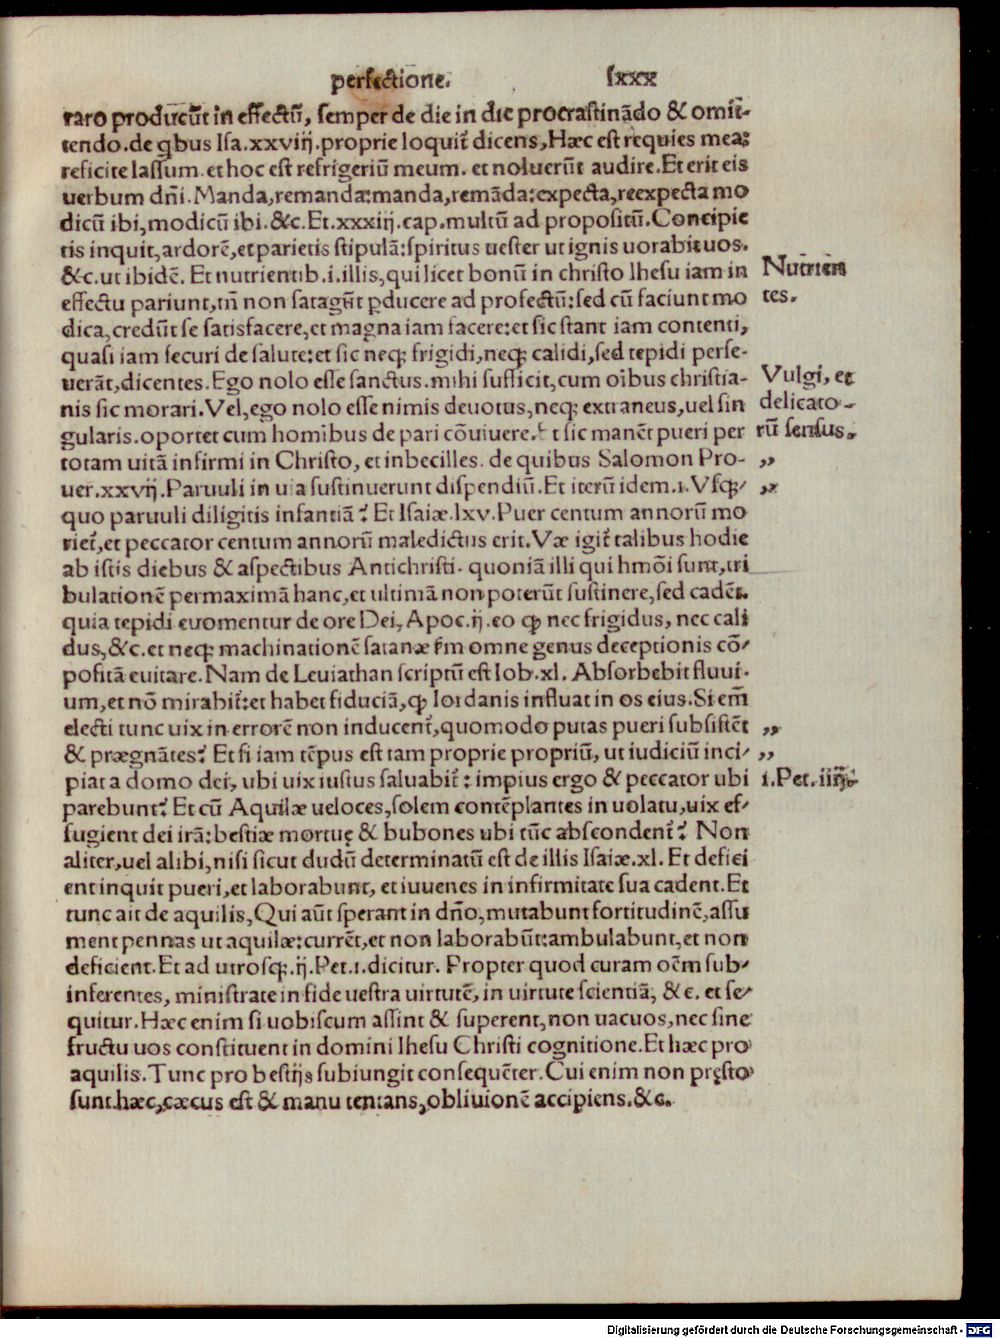 perfectione. lxxx
raro producūt in effectū, semper de die in die procrastinādo & omit-
tendo. de qbus Isa. xxviij. proprie loquit᷑ dicens, Hæc est requies mea:
reficite lassum. et hoc est refrigeriū meum. et noluerūt audire. Et erit eis
uerbum dn̄i. Manda, remanda: manda, remāda: expecta, reexpecta mo
dicū ibi, modicū ibi. &c. Et. xxxiij. cap. multū ad propositū. Concipie
tis inquit, ardorē, et parietis stipulā: spiritus uester ut ignis uorabit uos.
&c. ut ibidē. Et nutrientib. i. illis, qui licet bonū in christo Ihesu iam in
effectu pariunt, tn̄ non satagūt ꝓducere ad profectū: sed cū faciunt mo
dica, credūt se satisfacere, et magna iam facere: et sic stant iam contenti,
quasi iam securi de salute: et sic neqꝫ frigidi, neqꝫ calidi, sed tepidi perse-
uerāt, dicentes. Ego nolo esse sanctus. mihi sufficit, cum oībus christia-
nis sic morari. Vel, ego nolo esse nimis deuotus, neqꝫ extraneus, uel sin
gularis. oportet cum homībus de pari cōuiuere. Et sic manēt pueri per
totam uitā infirmi in Christo, et inbecilles. de quibus Salomon Pro-
uer. xxvij. Paruuli in uia sustinuerunt dispendiū. Et iterū idem. 1. Vsqꝫ
quo paruuli diligitis infantiā? Et Isaiæ. lxv. Puer centum annorū mo
riet᷑, et peccator centum annorū maledictus erit. Væ igit᷑ talibus hodie
ab istis diebus & aspectibus Antichristi. quoniā illi qui hmōi sunt, tri
bulationē permaximā hanc, et ultimā non poterūt sustinere, sed cadēt.
quia tepidi euomentur de ore Dei, Apoc. ij. eo ꝙ nec frigidus, nec cali
dus, &c. et neqꝫ machinationē satanæ fm omne genus deceptionis cō-
positā euitare. Nam de Leuiathan scriptū est Iob. xl. Absorbebit fluui-
um, et nō mirabit᷑: et habet fiduciā, ꝙ Iordanis influat in os eius. Si em̄
electi tunc uix in errorē non inducent᷑, quomodo putas pueri subsistēt
& prægnātes? Et si iam tēpus est tam proprie propriū, ut iudiciū inci-
piat a domo dei, ubi uix iustus saluabit᷑: impius ergo & peccator ubi
parebunt? Et cū Aquilæ ueloces, solem contēplantes in uolatu, uix ef-
fugient dei irā: bestiæ mortuę & bubones ubi tūc abscondent᷑? Non
aliter, uel alibi, nisi sicut dudū determinatū est de illis Isaiæ. xl. Et defici
ent inquit pueri, et laborabunt, et iuuenes in infirmitate sua cadent. Et
tunc ait de aquilis, Qui aūt sperant in dn̄o, mutabunt fortitudinē, assu
ment pennas ut aquilæ: currēt, et non laborabūt: ambulabunt, et non
deficient. Et ad utrosqꝫ. ij. Pet. 1. dicitur. Propter quod curam oēm sub-
inferentes, ministrate in fide uestra uirtutē, in uirtute scientiā, &c. et se-
quitur. Hæc enim si uobiscum assint & superent, non uacuos, nec sine
fructu uos constituent in domini Ihesu Christi cognitione. Et hæc pro
aquilis. Tunc pro bestijs subiungit consequēter. Cui enim non pręsto
sunt hæc, cæcus est & manu tentans, obliuionē accipiens. &c.
Nutrien
tes.
Vulgi, et
delicato-
rū sensus.
„
„
„
„
1. Pet. iiij.
Digitalisierung gefördert durch die Deutsche Forschungsgemeinschaft - DFG